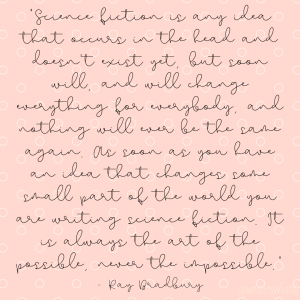 "Science fiction is any idea
that occurs in the head and
doesn't exist yet, but soon
will, and will change
everything for everybody, and
nothing will ever be the same
again. As soon as you have
an idea that changes some
small part of the world you
are writing science fiction. It
is always the art of the
possible, never the impossible."
- Ray Bradbury